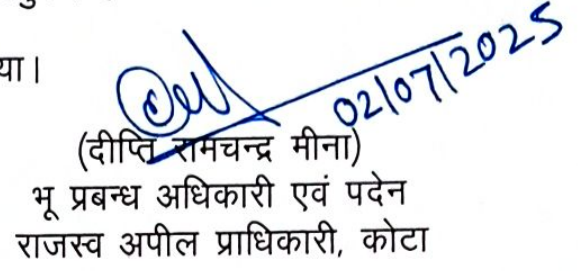 या।
02/07/2025
(दीप्ति रामचन्द्र मीना)
भू प्रबन्ध अधिकारी एवं पदेन
राजस्व अपील प्राधिकारी, कोटा